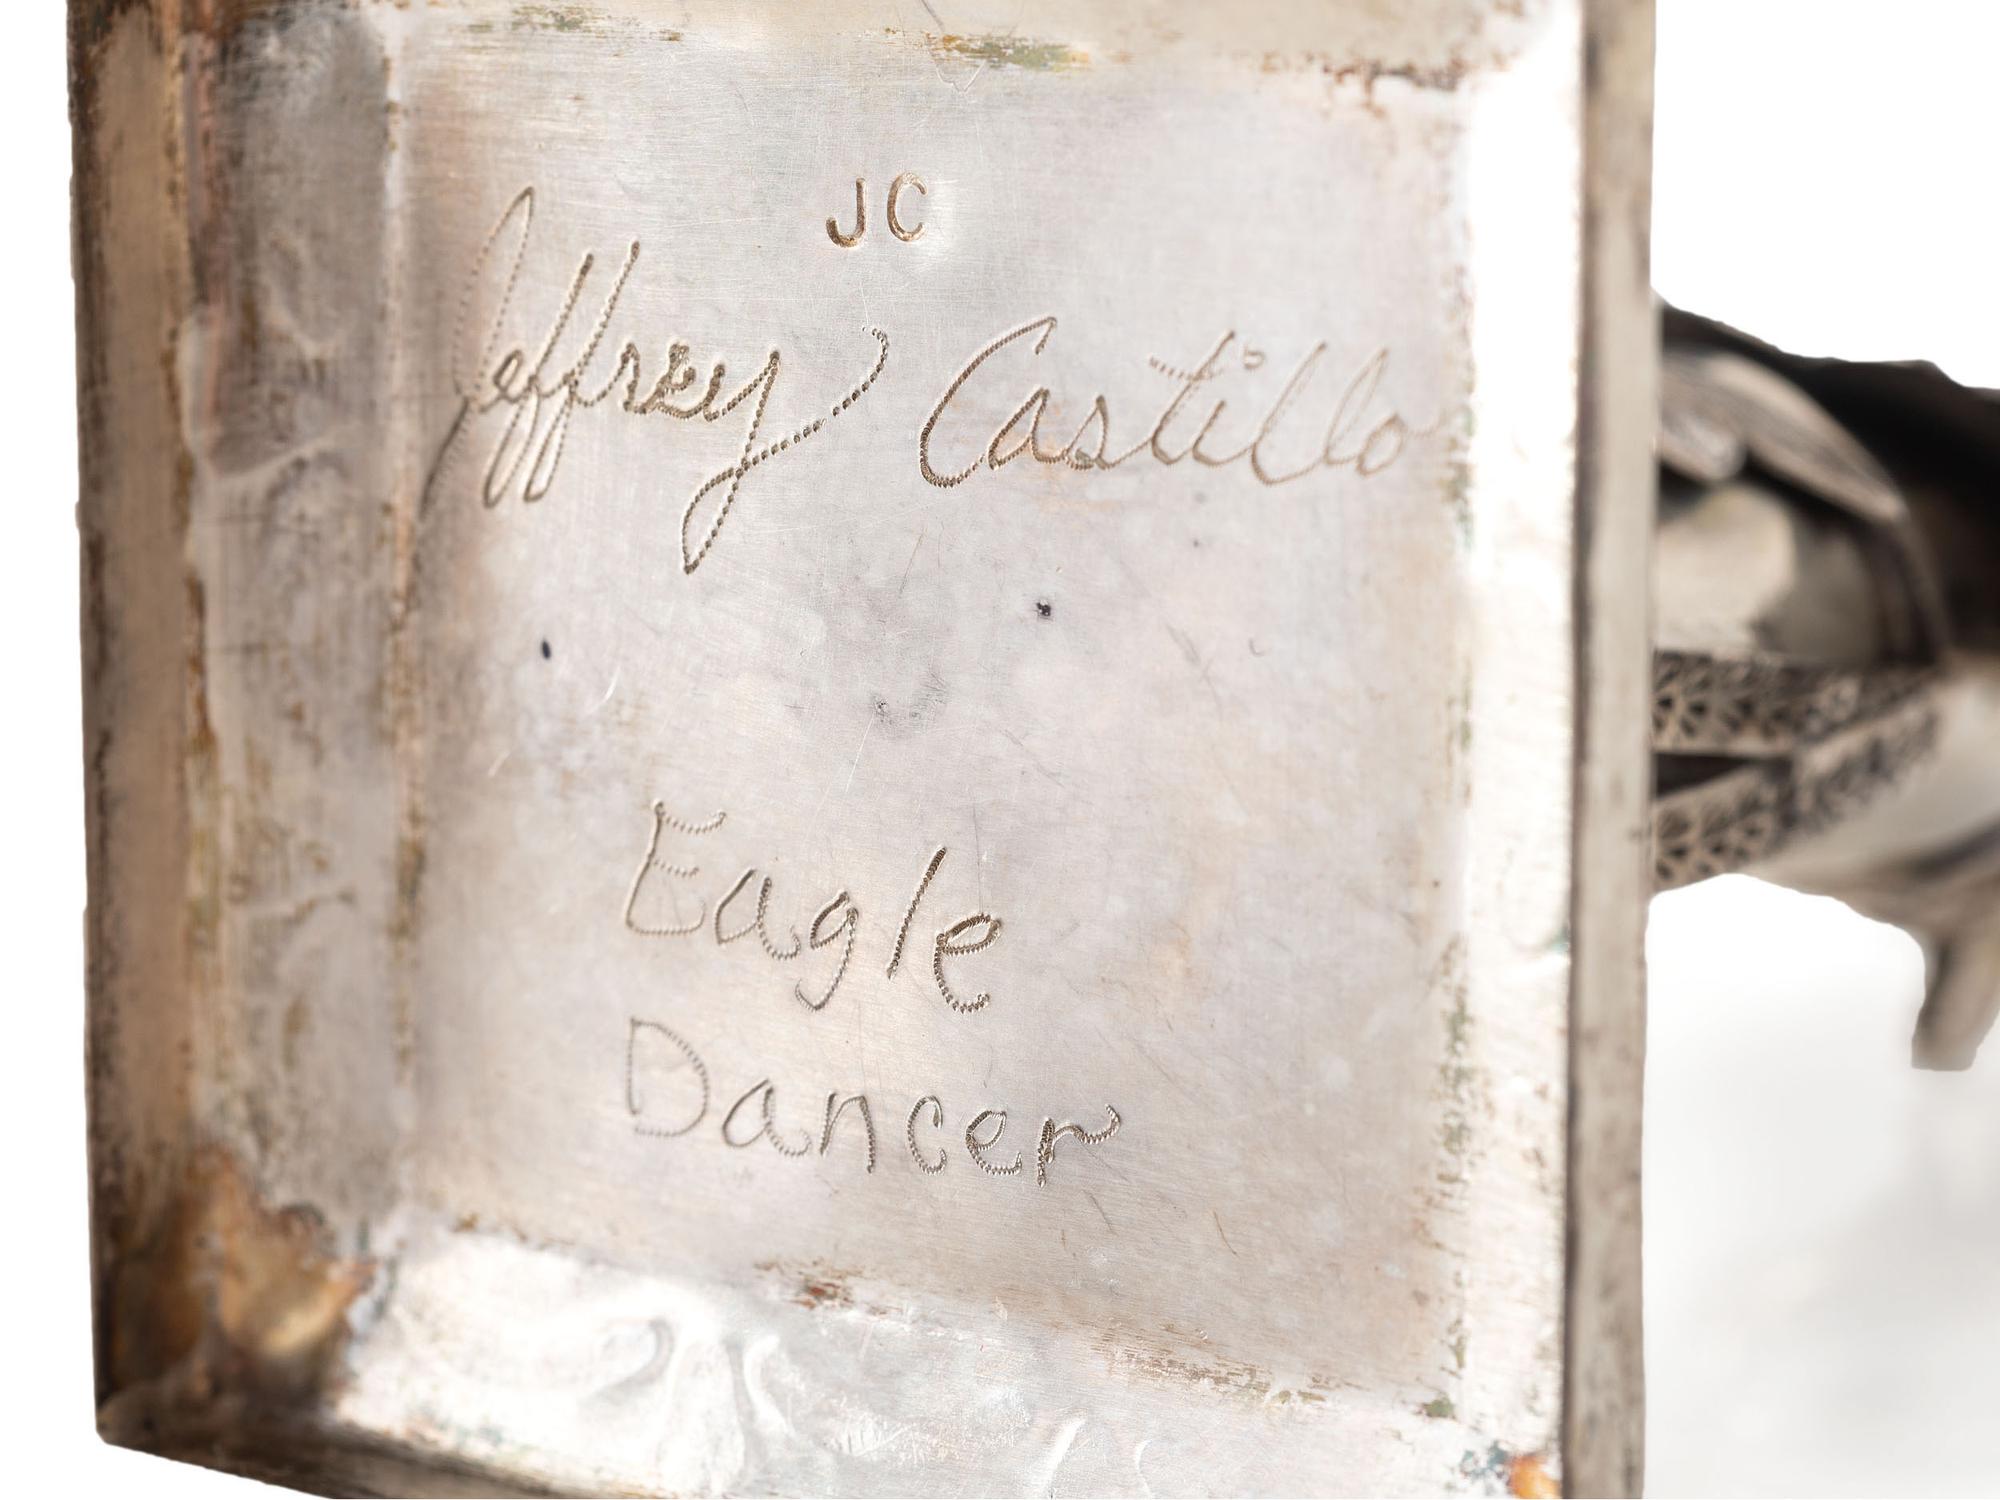 JC
Jeffrey Castillo
Eagle
Dancer